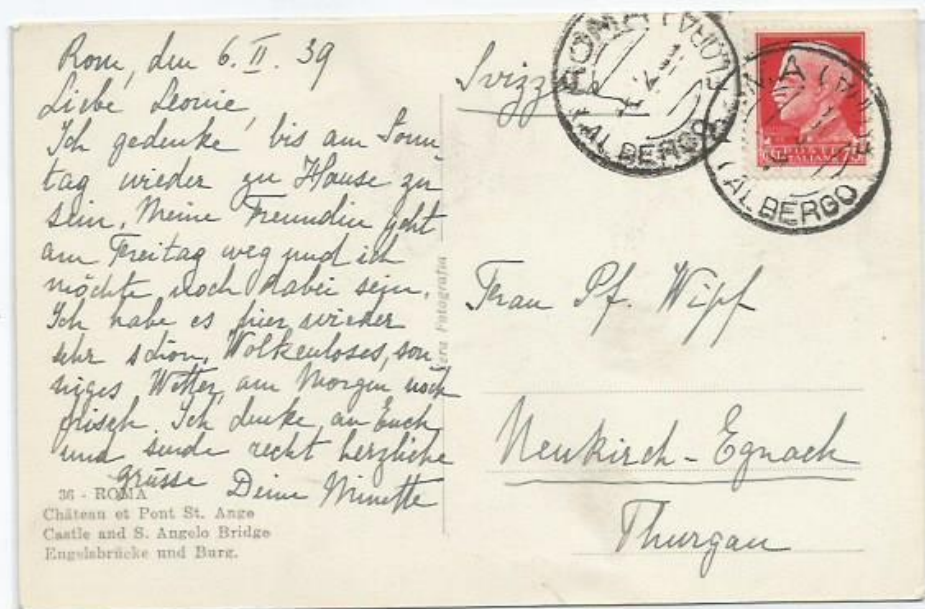 Rom, den 6. II. 39
Liebe Leonie,
Ich gedenke bis am Sonn
tag wieder zu Hause zu
sein. Meine Freundin geht
am Freitag weg und ich
möchte noch dabei sein.
Ich habe es hier wieder
sehr schön, Wolkenloses, son
niges Wetter, am Morgen noch
frisch. Ich denke an Euch
und sende recht herzliche
Grüsse Deine Minette
36 - ROMA
Château et Pont St. Ange
Castle and S. Angelo Bridge
Engelsbrücke und Burg.
Vera Fotografia
Svizzera
ROMA
ALBERGO
ALBERGO
Frau Pf. Wipf
Neukirch - Egnach
Thurgau